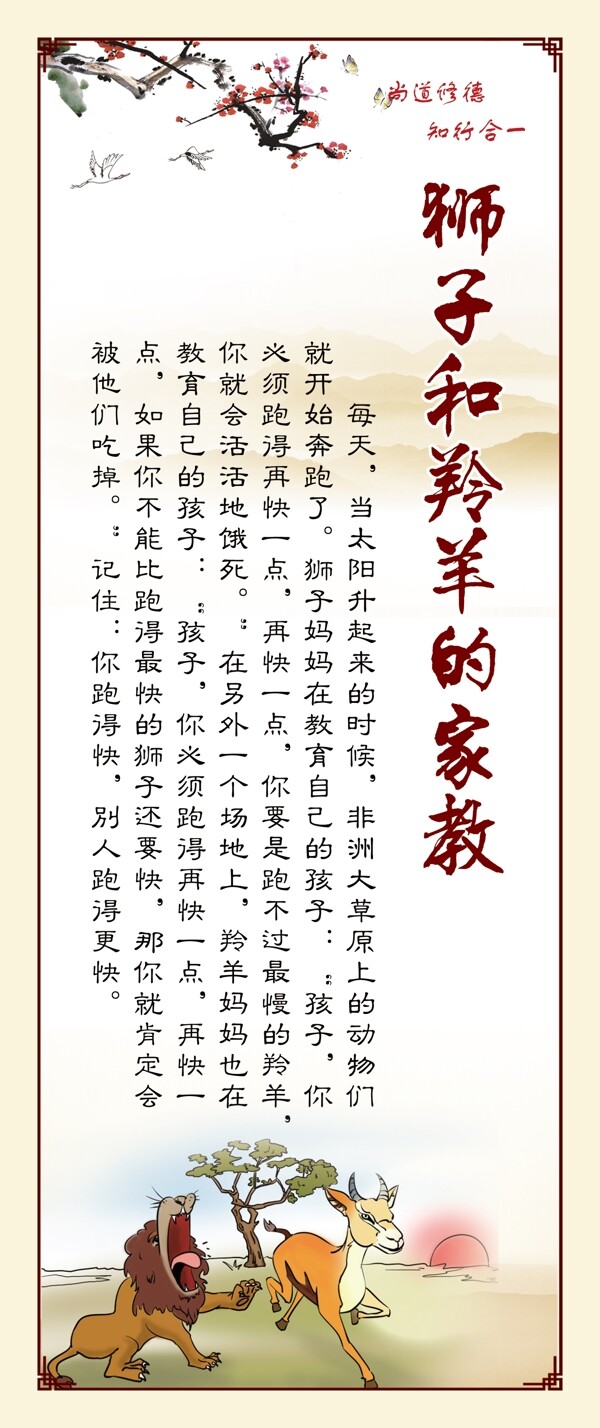 尚道修德
知行合一
狮子和羚羊的家教
每天，当太阳升起来的时候，非洲大草原上的动物们
就开始奔跑了。狮子妈妈在教育自己的孩子：“孩子，你
必须跑得再快一点，再快一点，你要是跑不过最慢的羚羊，
你就会活活地饿死。”在另外一个场地上，羚羊妈妈也在
教育自己的孩子：“孩子，你必须跑得再快一点，再快一
点，如果你不能比跑得最快的狮子还要快，那你就肯定会
被他们吃掉。”记住：你跑得快，别人跑得更快。